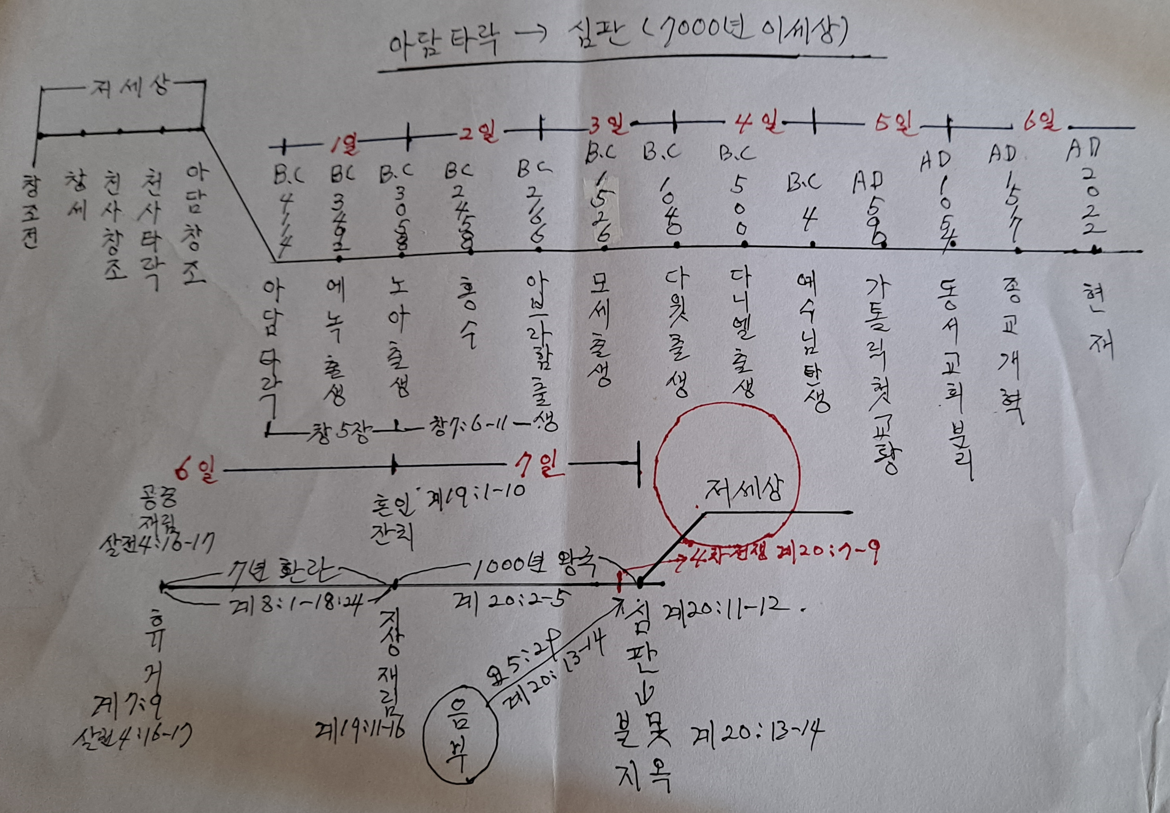 아담타락 → 심판 (7000년 이세상)
저세상
1일 2일 3일 4일 5일 6일
창조전
창세
천사창조
천사타락
아담창조
B.C 4114 아담타락
BC 3492 에녹출생
B.C 3058 노아출생
BC 2458 홍수
BC 2166 아브라함출생
B.C 1526 모세출생
B.C 1040 다윗출생
B.C 500 다니엘출생
B.C 4 예수님탄생
AD 590 가톨릭첫교황
AD 1054 동서교회분리
AD. 1517 종교개혁
AD 2022 현재
창5장 창7:6-11
6일 7일
공중재림
살전4:16-17
혼인잔치 계19:1-10
저세상
4차전쟁 계20:7-9
7년 환란 1000년 왕국
계8:1-18:24 계20:2-5
휴거
계7:9
살전4:16-17
지상재림
계19:11-16
음부
요5:29
계20:13-14
심판 계20:11-12.
↓
불못 계20:13-14
지옥